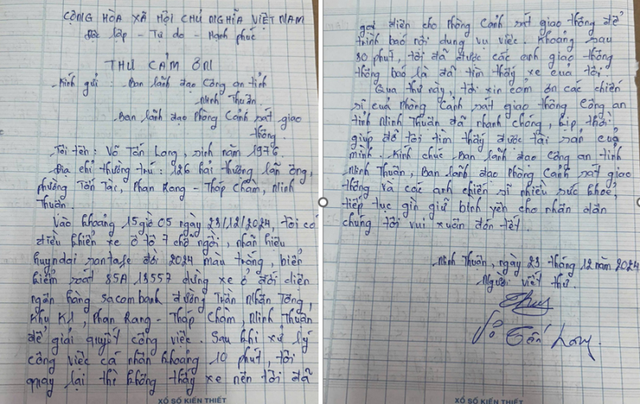 CỘNG HÒA XÃ HỘI CHỦ NGHĨA VIỆT NAM
Độc lập - Tự do - Hạnh phúc
THƯ CẢM ƠN
Kính gửi: Ban lãnh đạo Công an tỉnh
Ninh Thuận
Ban lãnh đạo Phòng Cảnh sát giao
thông.
Tôi tên: Võ Tấn Long, sinh năm 1976
Địa chỉ thường trú: 126 hải thượng lãn ông,
phường Tấn Tài, Phan Rang - Tháp Chàm, Ninh
Thuận.
Vào khoảng 15 giờ 05 ngày 23/12/2024 tôi có
điều khiển xe ô tô 7 chỗ ngồi, nhãn hiệu
huyndai santafe đời 2024 màu trắng, biển
kiểm soát 85A 13557 dừng xe ở đối diện
ngân hàng sacombank đường Trần Nhân Tông,
khu K1, Phan Rang - Tháp Chàm, Ninh Thuận
để giải quyết công việc. Sau khi xử lý
công việc cá nhân khoảng 10 phút, tôi
quay lại thì không thấy xe nên tôi đã
XỔ SỐ KIẾN THIẾT
gọi điện cho Phòng Cảnh sát giao thông để
trình báo nội dung vụ việc. Khoảng sau
30 phút, tôi đã được các anh giao thông
thông báo là đã tìm thấy xe của tôi.
Qua thư này, tôi xin cảm ơn các chiến
sĩ của Phòng Cảnh sát giao thông Công an
tỉnh Ninh Thuận đã nhanh chóng, kịp thời
giúp đỡ tôi tìm thấy được tài sản của
mình. Kính chúc Ban lãnh đạo Công an tỉnh
Ninh Thuận, Ban lãnh đạo Phòng Cảnh sát giao
thông và các anh chiến sĩ nhiều sức khỏe,
tiếp tục gìn giữ bình yên cho nhân dân
chúng tôi vui xuân đón tết.
Ninh Thuận, ngày 23 tháng 12 năm 2024
Người viết thư
Võ Tấn Long
XỔ SỐ KIẾN THIẾT